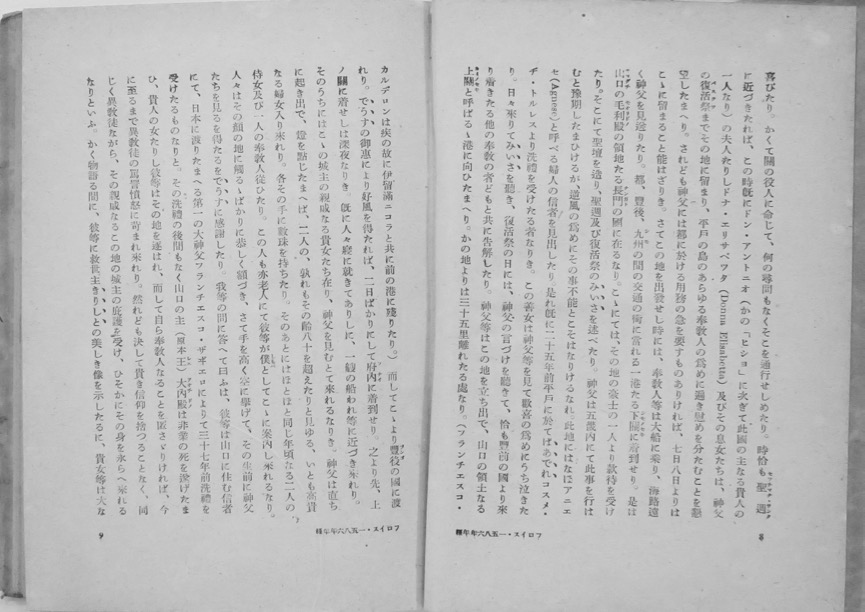 喜びたり。かくて關の役人に命じて、何の尋問もなくそこを通行せしめたり。時恰も聖週
に近づきたれば、この時既にドン・アントニオ(かの「ヒショ」に次ぎて此國の主なる貴人の
一人なり)の夫人たりしドナ・エリサベツタ(Donna Elisabetta)及びその息女たちは、神父
の復活祭までその地に留まり、平戸の島のあらゆる奉教人の爲めに過き慰めを分たむことを懇
望したまへり。されども神父には都に於ける用務の急を要するものありければ、七日八日よりは
こゝに留まること能はざりき。さてこの地を出發せし時には、奉教人等は大船に乗り、海路遠
く神父を見送りたり。都、豐後、九州の間の交通の衝に當れる一港たる下關に着到せり。是は
山口の毛利殿の領地たる長門の國に在るなり。こゝにては、その地の豪士の一人より欵待を受け
たり。そこにて聖壇を造り、聖週及び復活祭のみいさを述べたり。神父は五畿内にて此事を行は
むと豫期したまひけるが、逆風の爲めにその事不能とこそはなりけるなれ。此地にはなほアニエ
セ(Agnese)と呼べる婦人の信者を見出したり。是れ既に二十五年前平戸に於てぱあでれ、コスメ・
ヂ・トルレスより洗禮を受けたる者なりき。この善女は神父等を見て歡喜の爲めにうち泣きた
り。日々來りてみいさを聽き、復活祭の日には、神父の言づけを聽きて、恰も豐前の國より來
り着きたる他の奉教の者どもと共に告解したり。神父等はこの地を立ち出で、山口の領土なる
上關と呼ばるゝ港に向ひたまへり。かの地よりは三十五里離れたる處なり。(フランチエスコ・
フロイス・一五八六年年報
8
カルデロンは疾の故に伊留滿ニコラと共に前の港に殘りたり。)而してこゝより豐後の國に渡
れり。でうすの御惠により好風を得たれば、二日ばかりにして府内に着到せり。之より先、上
ノ關に着せしは深夜なりき、既に人々寢に就きてありしに、一艘の船われ等に近づき來れり。
そのうちにはこゝの城主の親戚なる貴女たち在り、神父を見むとて來れるなりき。神父は直ち
に起き出で、燈を點じたまへば、二人の、孰れもその齡八十を超えたりと見ゆる、いとも高貴
なる婦女入り來れり。各その手に數珠を持ちたり。そのあとにはほとほと同じ年頃なる二人の、
侍女及び一人の奉教人從ひたり。この人も亦老人にて彼等が僕としてこゝに案内し來れるなり。
人々はその顔の地に觸るゝばかりに恭しく額づき、さて手を高く空に擧げて、その生前に神父
たちを見るを得たるをでうすに感謝したり。我等の問に答へて曰ふは、彼等は山口に住む信者
にて、日本に渡りたまへる第一の大神父フランチエスコ・ザギエロによりて三十七年前洗禮を
受けたるものなりと。その洗禮の後間もなく山口の主(原本王)大内殿は非業の死を遂げたま
ひ、貴人の女たりし彼等はその地を逐はれ、而して自ら奉教人なることを匿さゞりければ、今
に至るまで異教徒の罵詈憤怒に苛まれ來れり。然れども決して貴き信仰を捨つることなく、同
じく異教徒ながら、その親戚なるこの地の城主の庇護を受け、ひそかにその身を永らへ來れる
なりといふ。かく物語る間に、彼等に救世主きりしとの美しき像を示したるに、貴女等は大な
フロイス・一五八六年年報
9